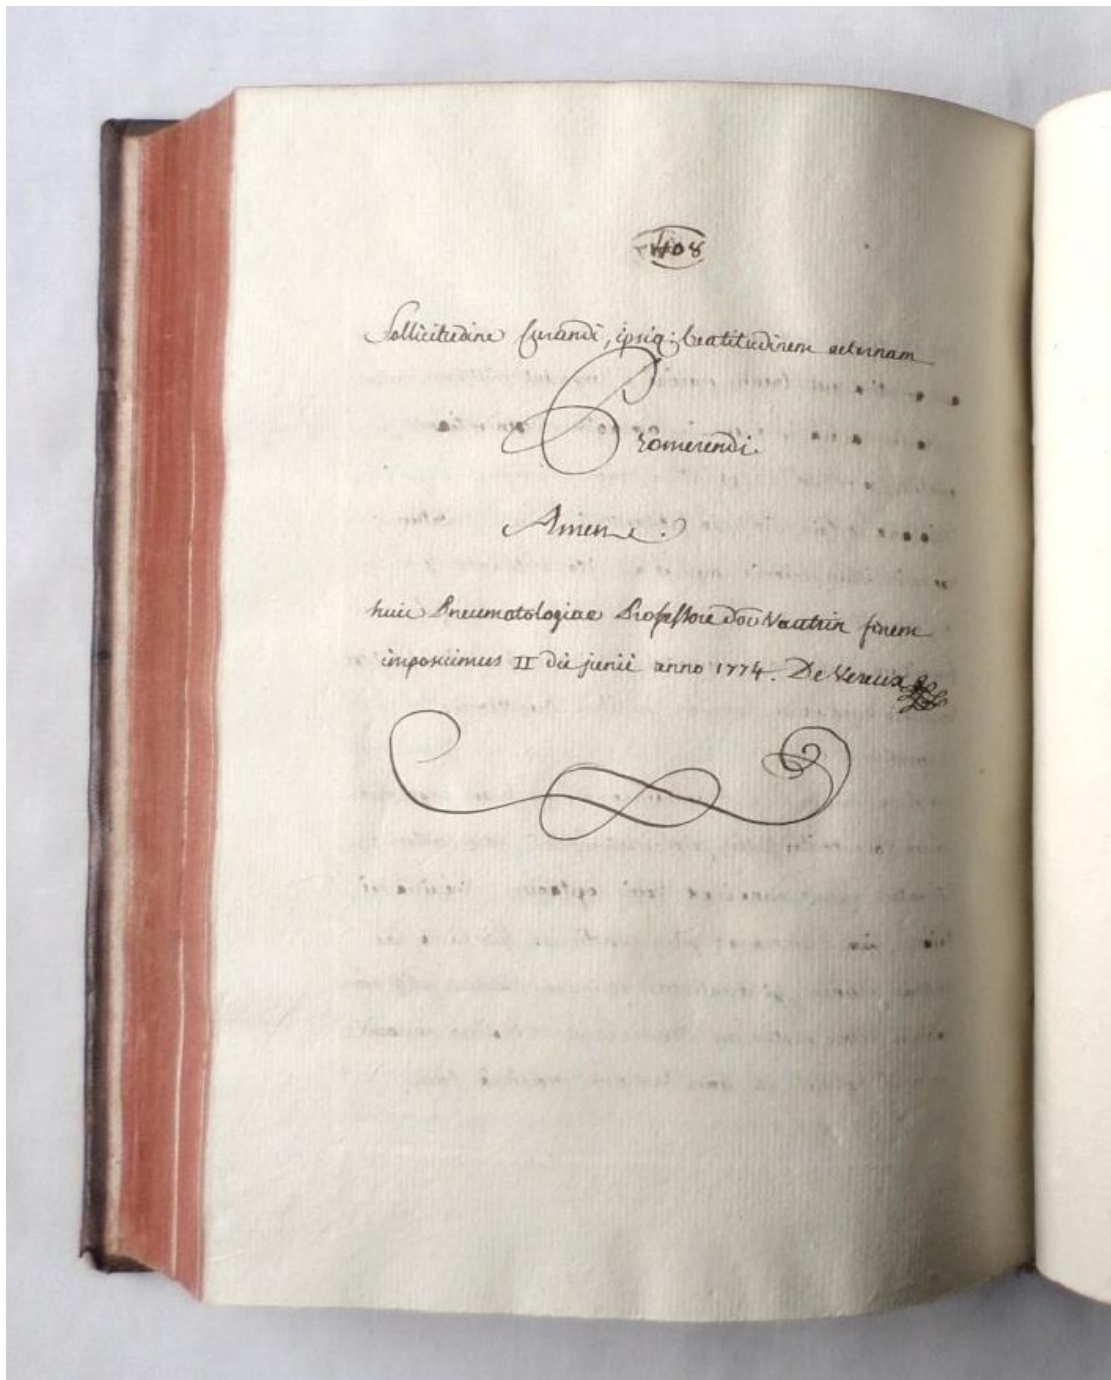 408
Sollicitudine Curandi, ipsiq: beatitudinem aeternam
Promerendi.
Amen.
huic Pneumatologiae Professore Doū Vautrin finem
imposuimus II die junii anno 1774. De Vereux